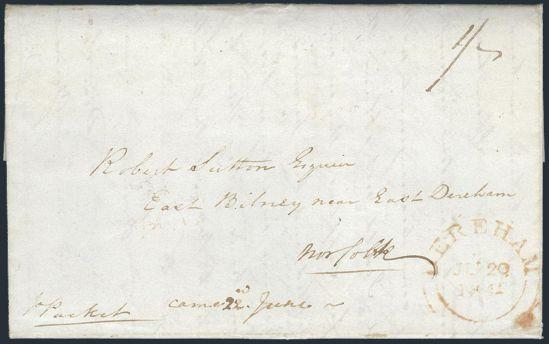 1/-
Robert Sutton Esquire
East Bilney near East Dereham
Norfolk
DEREHAM
JU 20
pr Packet came 22nd June